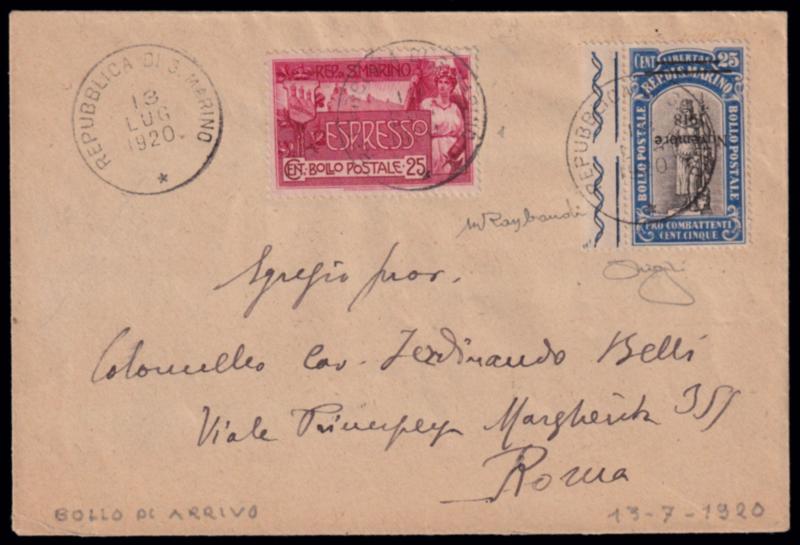 REPUBBLICA DI S. MARINO
13
LUG
1920
REP. S. MARINO
ESPRESSO
CENT. BOLLO POSTALE 25
CENT. LIBERTAS 25
REP. DI S. MARINO
3 Novembre
1918
BOLLO POSTALE
BOLLO POSTALE
PRO COMBATTENTI
CENT. CINQUE
REPUBBLICA
1
m Raybaudi
Egregio
Colonnello Cav. Ferdinando Belli
Viale Principessa Margherita
Roma
BOLLO DI ARRIVO
13-7-1920